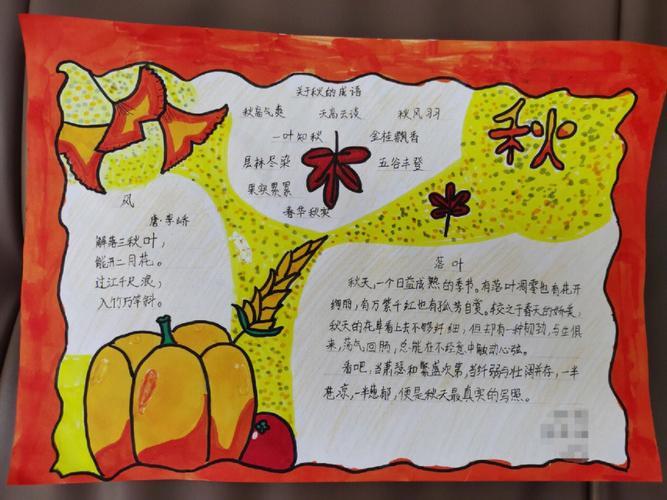 关于秋的成语
秋高气爽 天高云淡 秋风习习
一叶知秋 金桂飘香
层林尽染 五谷丰登
果实累累
春华秋实
秋
风
唐·李峤
解落三秋叶，
能开二月花。
过江千尺浪，
入竹万竿斜。
落叶
秋天，一个日益成熟的季书。有落叶凋零也有花开
绚丽，有万紫千红也有孤芳自赏。较之于春天的娇美，
秋天的花草看上去不够纤细，但却有一种韧劲，与生俱
来，荡气回肠，总能在不经意中触动心弦。
看吧，当萧瑟和繁盛次第，当纤弱与壮阔并存，一半
苍凉，一半葱郁，便是秋天最真实的写照。